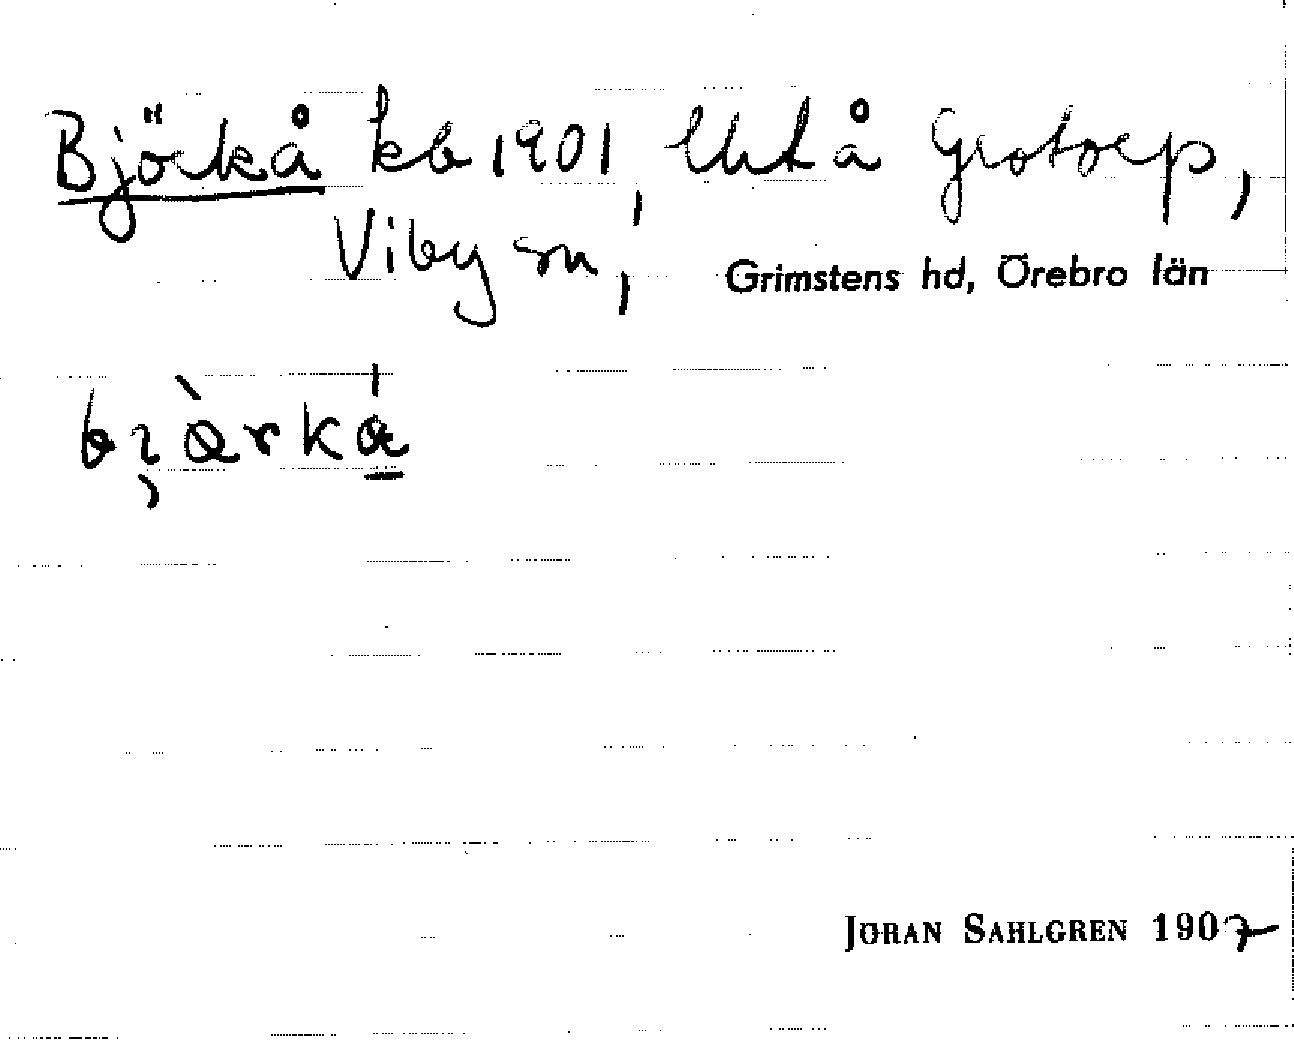 Björkå kb 1901, lht å Grotorp,
Viby sn, Grimstens hd, Örebro län
bjàrká
JÖRAN SAHLGREN 1907